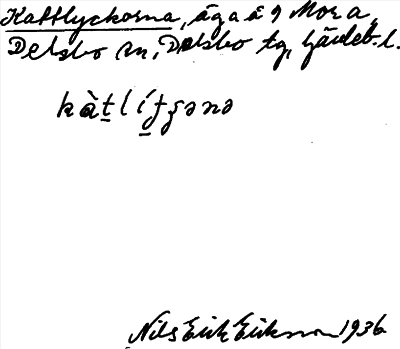 Kattlyckorna, äga å 9 Mora,
Delsbo sn, Delsbo tg, Gävleb. l.
kàtlíʃʂənə
Nils Erik Eriksson 1936